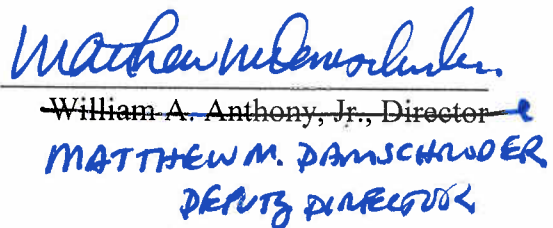 Matthew M. Damschroder
William A. Anthony, Jr., Director
MATTHEW M. DAMSCHRODER
DEPUTY DIRECTOR